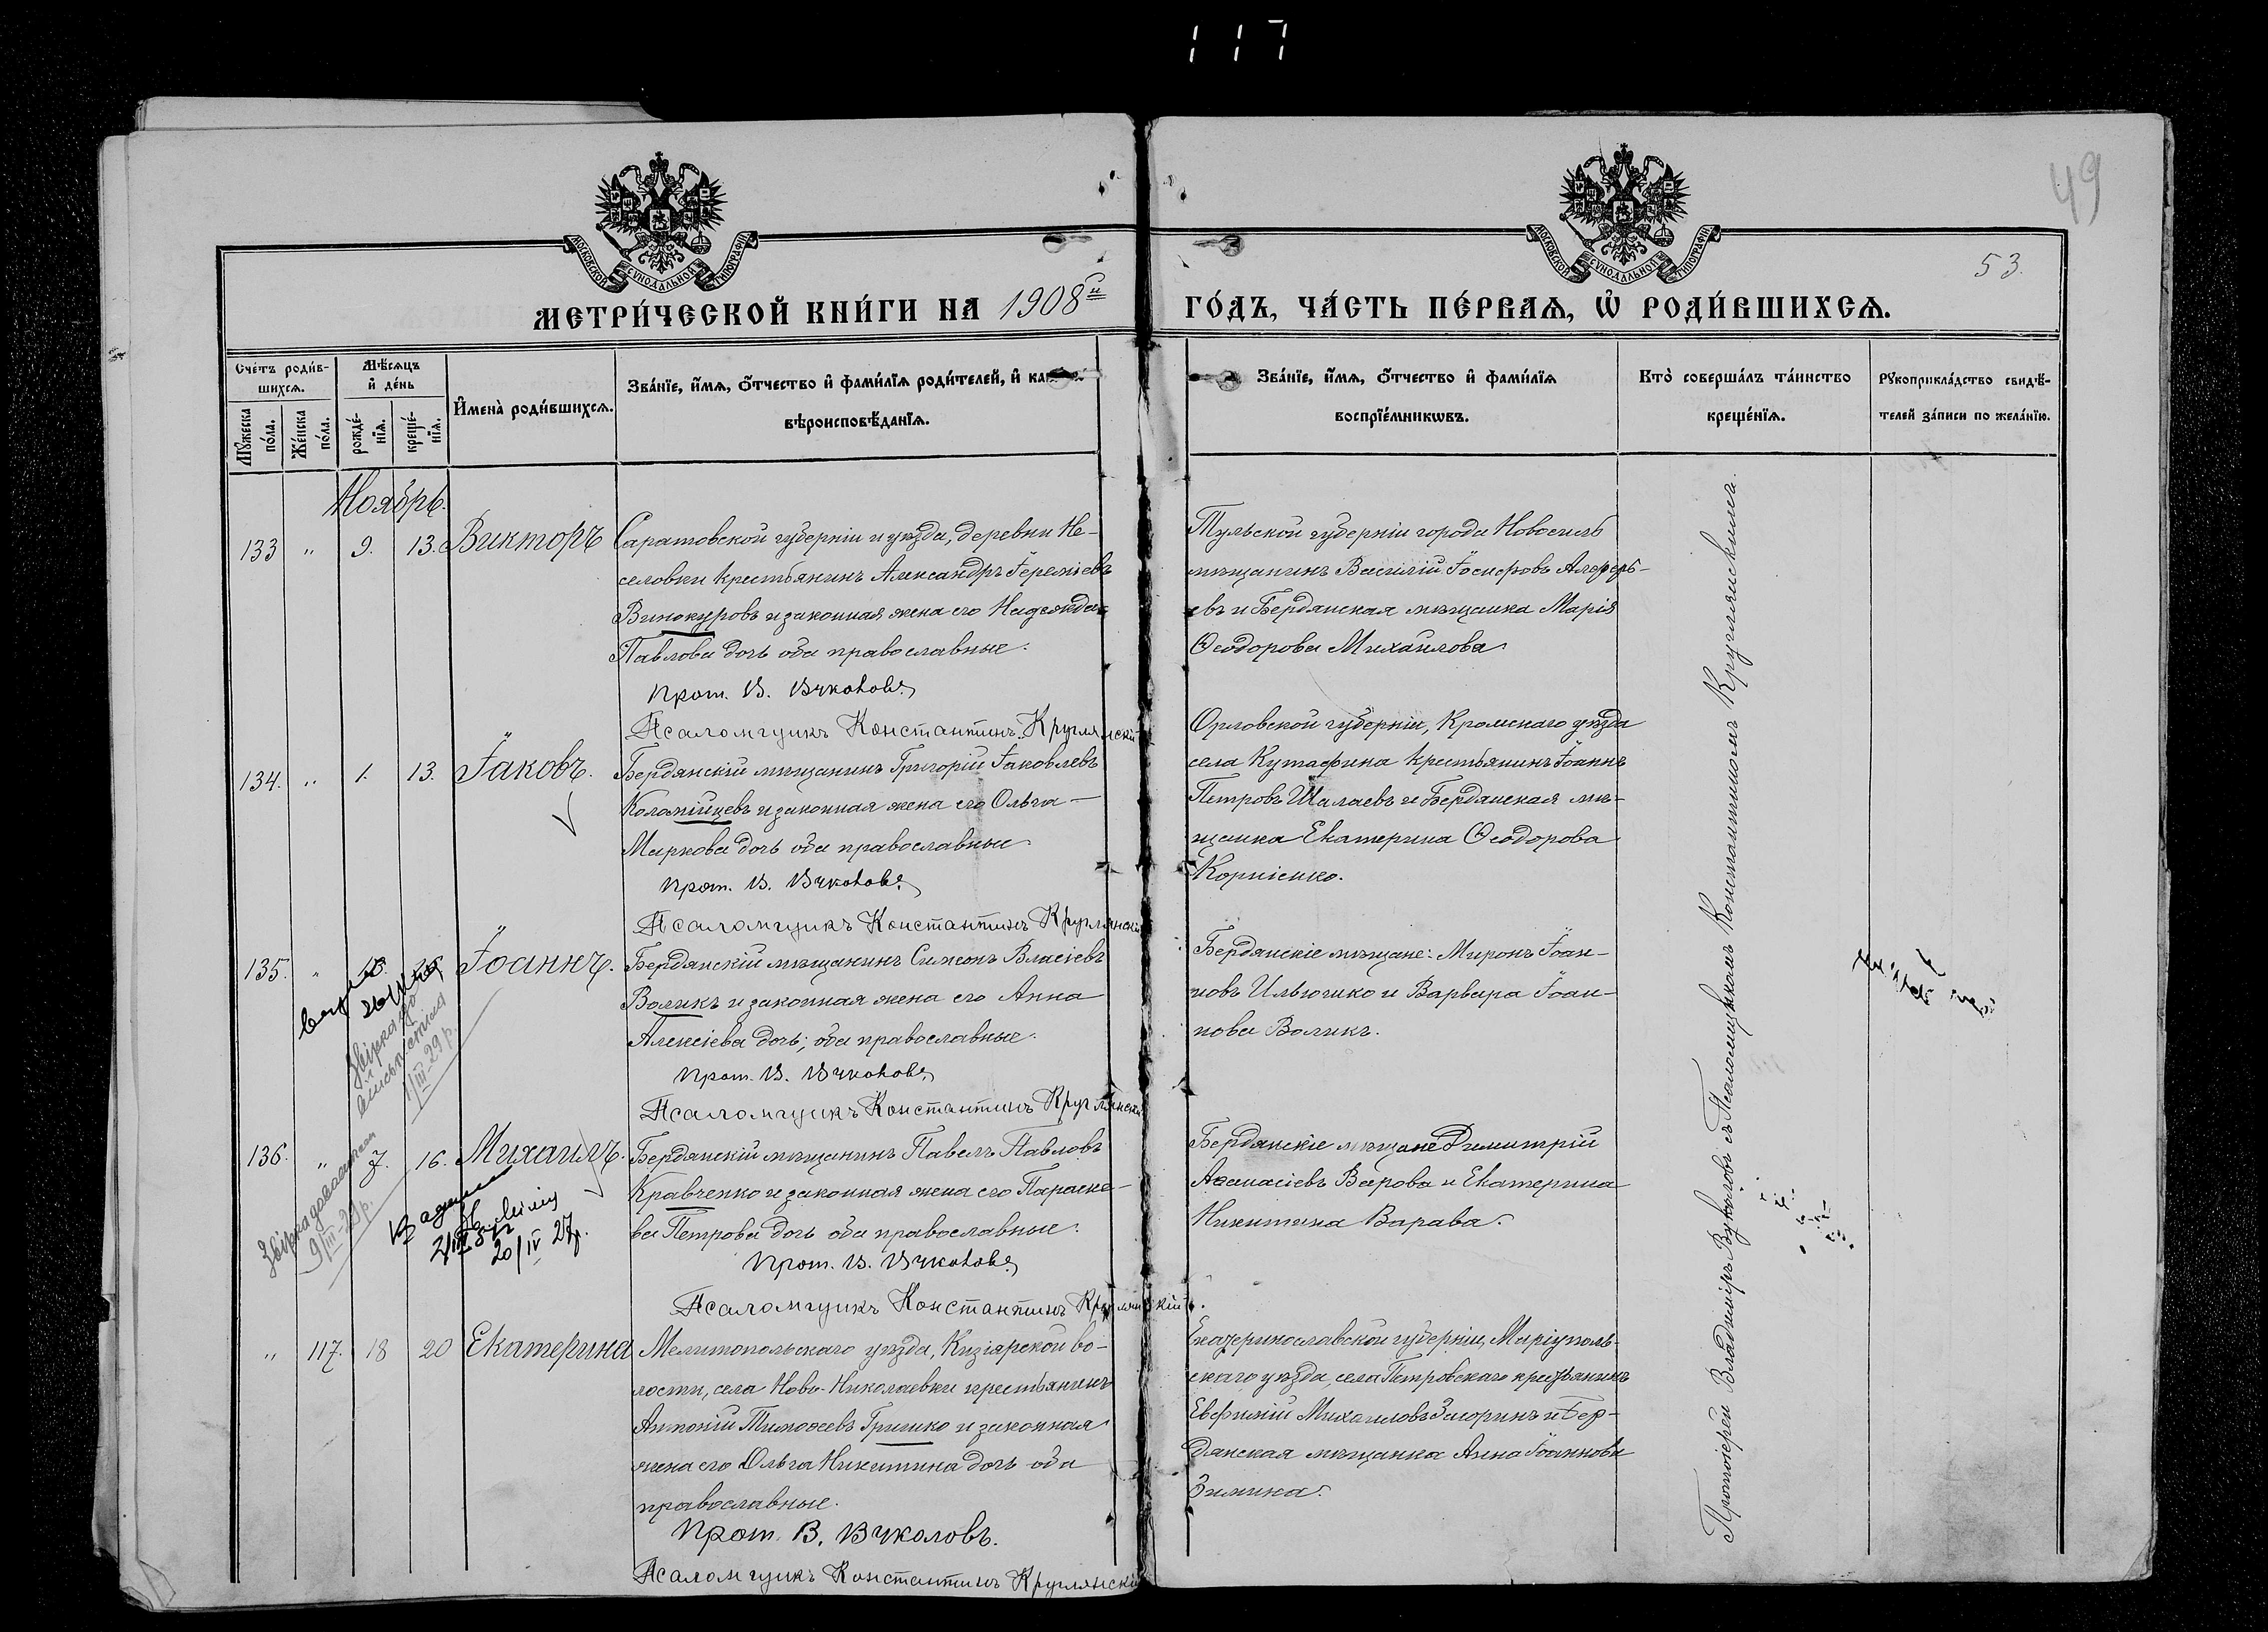 117
49
53.
МОСКОВСКОЙ СѴНОДАЛЬНОЙ ТИПОГРАФІИ
МОСКОВСКОЙ СѴНОДАЛЬНОЙ ТИПОГРАФІИ
МЕТРИ́ЧЕСКОЙ КНИ́ГИ НА 1908й ГО́ДЪ, ЧА́СТЬ ПЕ́РВАѦ, Ѡ҆ РОДИ́ВШИХСѦ.
Сче́тъ роди́в-
шихсѧ.
Мѣ́сѧцъ
и҆ де́нь
Мꙋ́жеска
по́ла.
Же́нска
по́ла.
рожде́-
нїѧ.
креще́-
нїѧ.
И҆мена̀ роди́вшихсѧ.
Зва́нїе, и҆́мѧ, ѻ҆́тчество и҆ фами́лїѧ роди́телей, и҆
вѣроисповѣ́данїѧ.
Зва́нїе, и҆́мѧ, ѻ҆́тчество и҆ фами́лїѧ
воспрїе́мникѡвъ.
Кто̀ соверша́лъ та́инство
креще́нїѧ.
Рꙋкоприкла́дство свидѣ́-
телей за́писи по жела́нїю.
Ноябрь.
133 " 9. 13. Викторъ
Саратовской губерніи и уѣзда, деревни Не-
еловки крестьянинъ Александръ Іереміевъ
Винокуровъ и законная жена его Надежда
Павлова дочь оба православные.
Прот. В. Вуколовъ
Псаломщикъ Константинъ Круглянскій
Тульской губерніи города Новосиль
мѣщанинъ Василій Іосифовъ Алферь-
евъ и Бердянская мѣщанка Марія
Ѳеодорова Михаилова
134. " 1. 13. Іаковъ.
Бердянскій мѣщанинъ Григорій Іаковлевъ
Коломійцевъ и законная жена его Ольга
Маркова дочь оба православные
Прот. В. Вуколовъ
Псаломщикъ Константинъ Круглянскій
Орловской губерніи, Кромскаго уѣзда
села Кутафина крестьянинъ Іоаннъ
Петровъ Шалаевъ и Бердянская мѣ-
щанка Екатерина Ѳеодорова
Корніенко.
135. " Іоаннъ.
Бердянскій мѣщанинъ Симеонъ Власіевъ
Воликъ и законная жена его Анна
Алексіева дочь, оба православные.
Прот. В. Вуколовъ
Псаломщикъ Константинъ Круглянскій
Бердянскіе мѣщане: Миронъ Іоан-
новъ Ильючико и Варвара Іоан-
нова Воликъ.
1/III-29 р.
136. " 7. 16. Михаилъ.
Бердянскій мѣщанинъ Павелъ Павловъ
Кравченко и законная жена его Параске-
ва Петрова дочь оба православные.
Прот. В. Вуколовъ
Псаломщикъ Константинъ Круглянскій.
Бердянскіе мѣщане Димитрій
Аѳанасіевъ Варова и Екатерина
Никитина Варава.
9/III-29 р.
20/IV 27 р.
" 117. 18 20 Екатерина
Мелитопольскаго уѣзда, Кизіярской во-
лости, села Ново-Николаевки крестьянинъ
Антоній Тимоѳеевъ Гришко и законная
жена его Ольга Никитина дочь оба
православные.
Прот. В. Вуколовъ.
Псаломщикъ Константинъ Круглянскій
Екатеринославской губерніи, Маріуполь-
скаго уѣзда, села Петровскаго крестьянинъ
Евфимій Михаиловъ Загоринъ и Бер-
дянская мѣщанка Анна Іоаннова
Зимина.
Протоіерей Владиміръ Вуколовъ съ Псаломщикомъ Константиномъ Круглянскимъ.